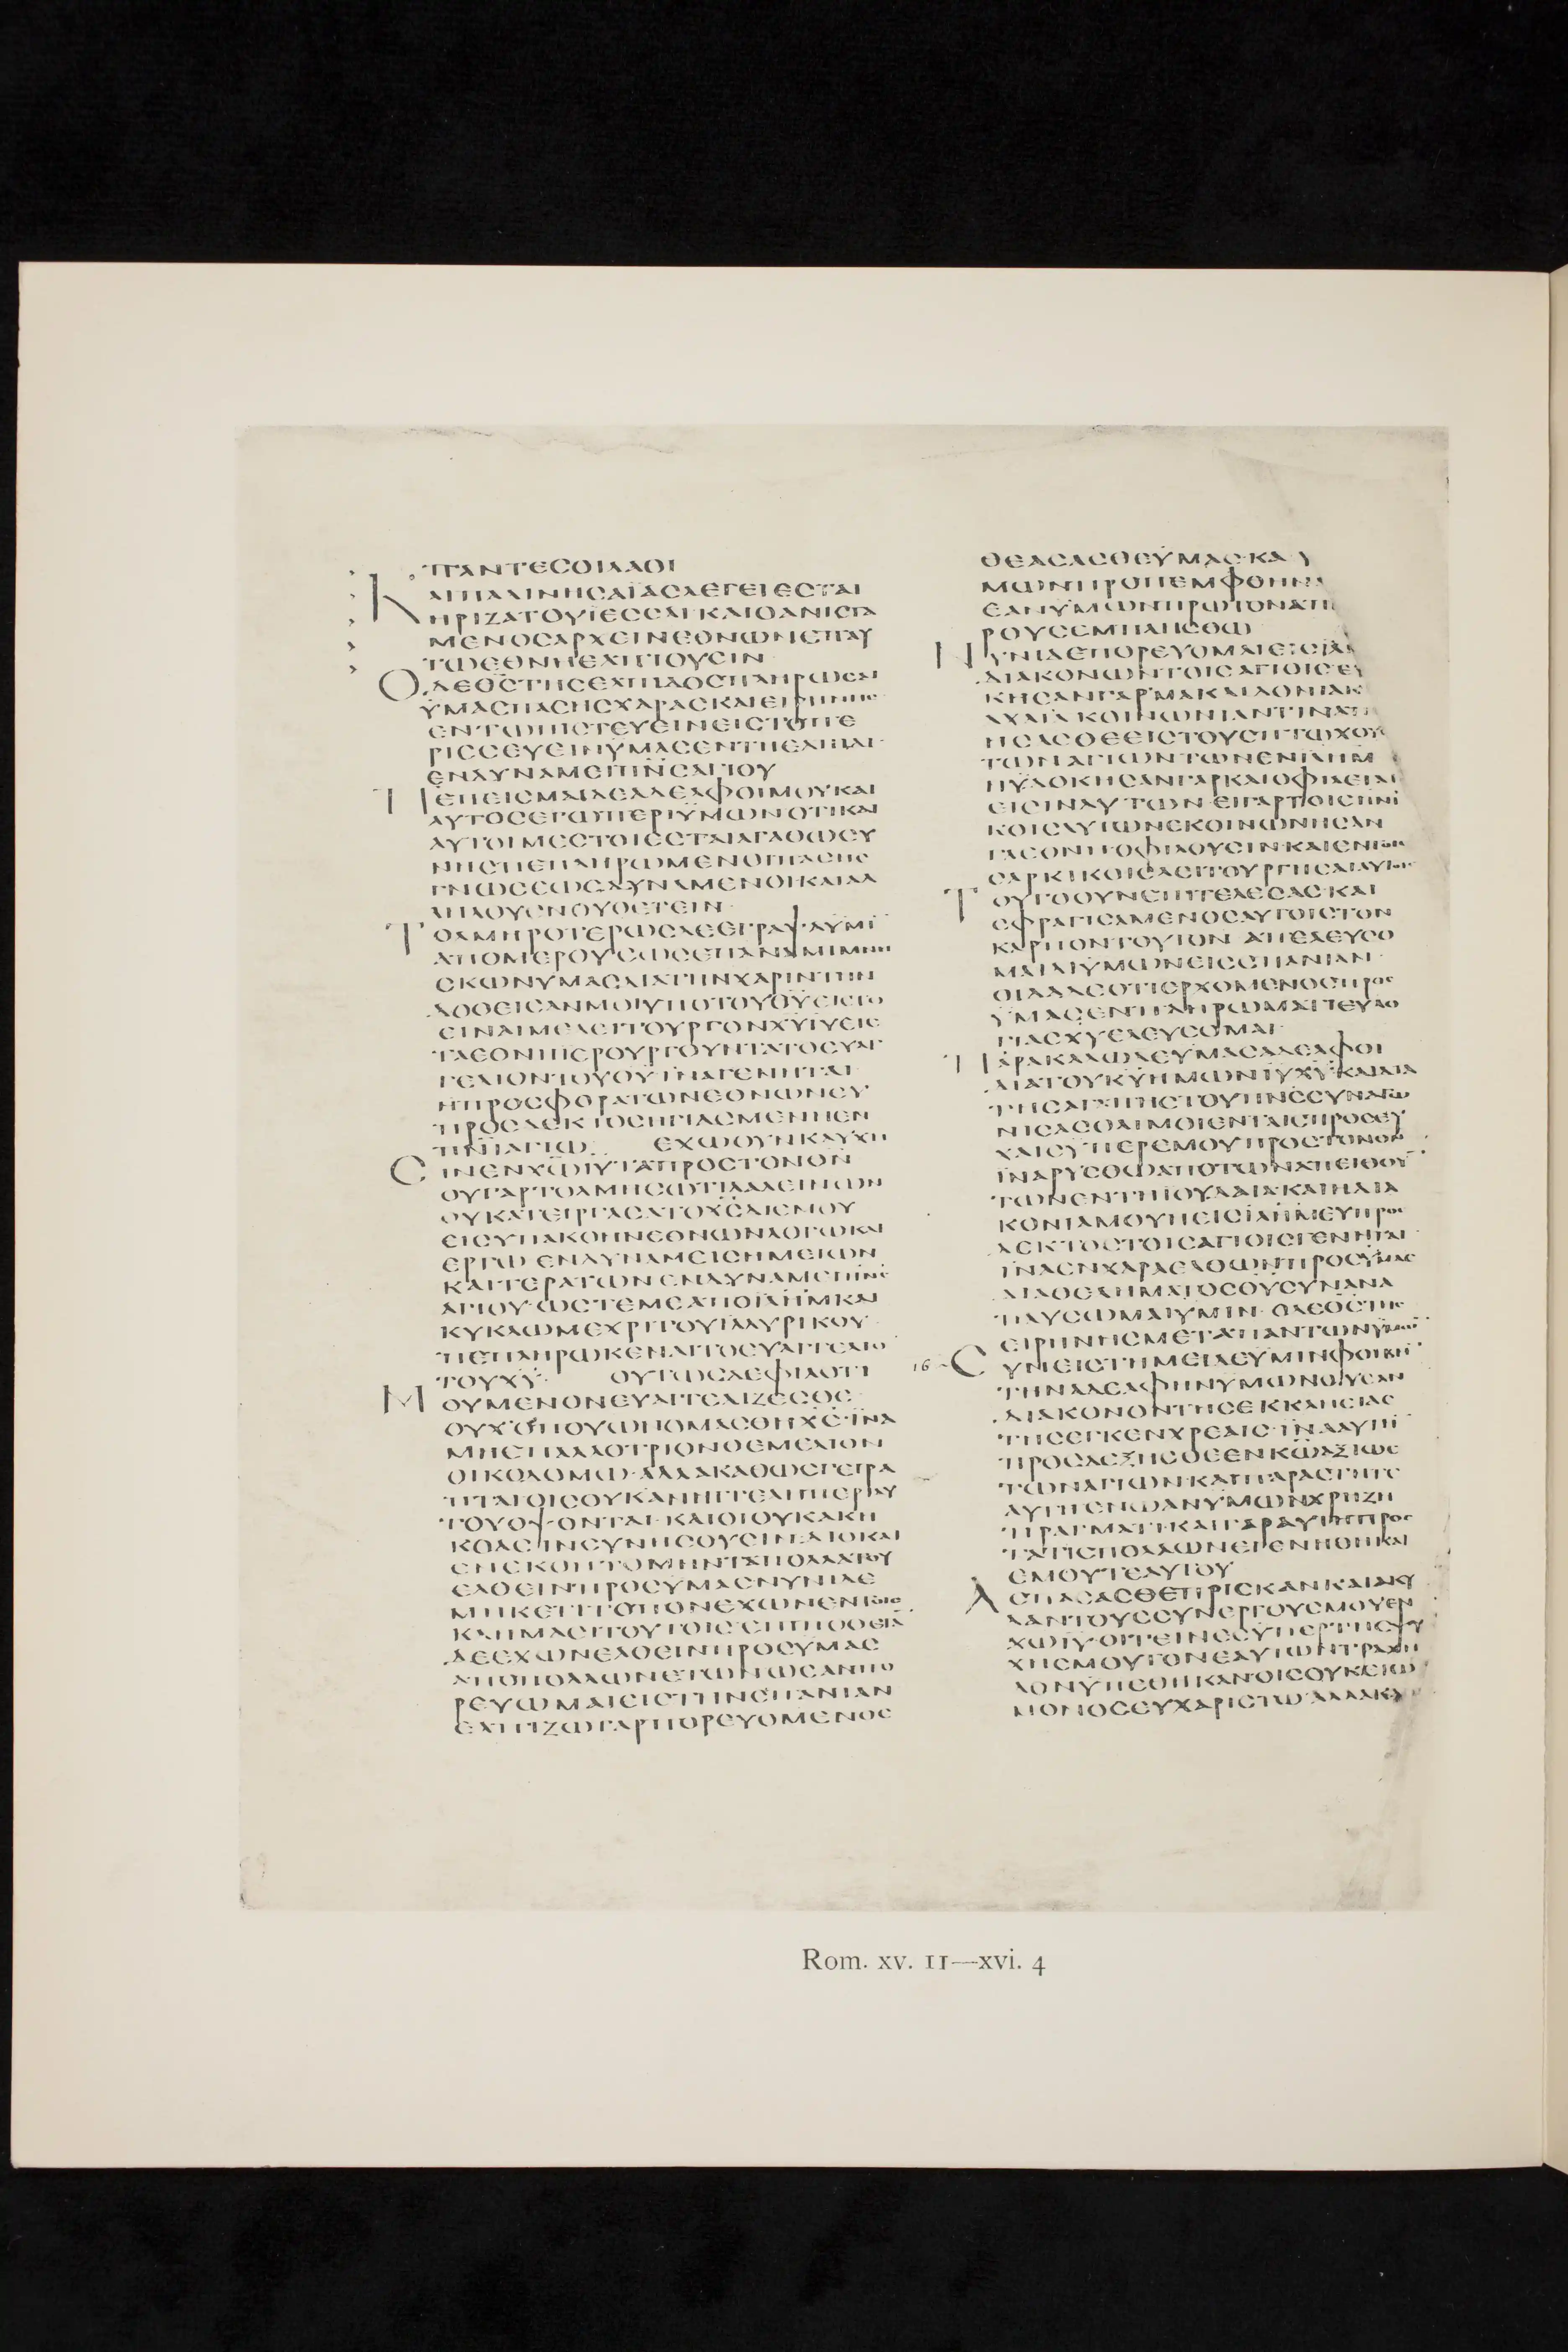 ΠΑΝΤΕϹΟΙΛΑΟΙ
ΚΑΙΠΑΛΙΝΗϹΑΪΑϹΛΕΓΕΙΕϹΤΑΙ
ΗΡΙΖΑΤΟΥΪΕϹϹΑΙ·ΚΑΙΟΑΝΙϹΤΑ
ΜΕΝΟϹΑΡΧΕΙΝΕΘΝΩΝΕΠΑΥ
ΤΩΕΘΝΗΕΛΠΙΟΥϹΙΝ
ΟΔΕΘ̅Ϲ̅ΤΗϹΕΛΠΙΔΟϹΠΛΗΡΩϹΑΙ
ΫΜΑϹΠΑϹΗϹΧΑΡΑϹΚΑΙΕΙΡΗΝΗϹ
ΕΝΤΩΠΙϹΤΕΥΕΙΝΕΙϹΤΟΠΕ
ΡΙϹϹΕΥΕΙΝΫΜΑϹΕΝΤΗΕΛΠΙΔΙ·
ΕΝΔΥΝΑΜΕΙΠ̅Ν̅Ϲ̅ΑΓΙΟΥ
ΠΕΠΕΙϹΜΑΙΔΕΑΔΕΛΦΟΙΜΟΥΚΑΙ
ΑΥΤΟϹΕΓΩΠΕΡΙΫΜΩΝΟΤΙΚΑΙ
ΑΥΤΟΙΜΕϹΤΟΙΕϹΤΑΙΑΓΑΘΩϹΥ
ΝΗϹΠΕΠΛΗΡΩΜΕΝΟΙΠΑϹΗϹ
ΓΝΩϹΕΩϹΔΥΝΑΜΕΝΟΙΚΑΙΑΛ
ΛΗΛΟΥϹΝΟΥΘΕΤΕΙΝ·
ΤΟΛΜΗΡΟΤΕΡΩϹΔΕΕΓΡΑΨΑΫΜΙ̅
ΑΠΟΜΕΡΟΥϹΩϹΕΠΑΝΑΜΙΜΝΗ
ϹΚΩΝΥΜΑϹΔΙΑΤΗΝΧΑΡΙΝΤΗΝ
ΔΟΘΕΙϹΑΝΜΟΙΥΠΟΤΟΥΘ̅Υ̅ΕΙϹΤΟ
ΕΙΝΑΙΜΕΛΕΙΤΟΥΡΓΟΝΧ̅Υ̅Ι̅Υ̅ΕΙϹ
ΤΑΕΘΝΗΙΕΡΟΥΡΓΟΥΝΤΑΤΟΕΥΑΓ
ΓΕΛΙΟΝΤΟΥΘ̅Υ̅ΪΝΑΓΕΝΗΤΑΙ
ΗΠΡΟϹΦΟΡΑΤΩΝΕΘΝΩΝΕΥ
ΠΡΟϹΔΕΚΤΟϹΗΓΙΑϹΜΕΝΗΕΝ
Π̅Ν̅Ι̅ΑΓΙΩ· ΕΧΩΟΥΝΚΑΥΧΗ
ϹΙΝΕΝΧ̅Ω̅Ι̅Υ̅ΤΑΠΡΟϹΤΟΝΘ̅Ν̅
ΟΥΓΑΡΤΟΛΜΗϹΩΤΙΛΑΛΕΙΝΩΝ
ΟΥΚΑΤΕΙΡΓΑϹΑΤΟΧ̅Ϲ̅ΔΙΕΜΟΥ
ΕΙϹΥΠΑΚΟΗΝΕΘΝΩΝΛΟΓΩΚΑΙ
ΕΡΓΩ·ΕΝΔΥΝΑΜΕΙϹΗΜΕΙΩΝ
ΚΑΙΤΕΡΑΤΩΝΕΝΔΥΝΑΜΕΙΠ̅Ν̅Ϲ̅
ΑΓΙΟΥ·ΩϹΤΕΜΕΑΠΟΪ̅Λ̅Η̅Μ̅ΚΑΙ
ΚΥΚΛΩΜΕΧΡΙΤΟΥΪΛΛΥΡΙΚΟΥ·
ΠΕΠΛΗΡΩΚΕΝΑΙΤΟΕΥΑΓΓΕΛΙΟ̅
ΤΟΥΧ̅Υ̅· ΟΥΤΩϹΔΕΦΙΛΟΤΙ
ΜΟΥΜΕΝΟΝΕΥΑΓΓΕΛΙΖΕϹΘΕ
ΟΥΧΟΠΟΥΩΝΟΜΑϹΘΗΧ̅Ϲ̅·ΪΝΑ
ΜΗΕΠΑΛΛΟΤΡΙΟΝΘΕΜΕΛΙΟΝ
ΟΙΚΟΔΟΜΩ·ΑΛΛΑΚΑΘΩϹΓΕΓΡΑ
ΠΤΑΙΟΙϹΟΥΚΑΝΗΓΓΕΛΗΠΕΡΙΑΥ
ΤΟΥΟΨΟΝΤΑΙ·ΚΑΙΟΙΟΥΚΑΚΗ
ΚΟΑϹΙΝϹΥΝΗϹΟΥϹΙΝ·ΔΙΟΚΑΙ
ΕΝΕΚΟΠΤΟΜΗΝΤΑΠΟΛΛΑΤΟΥ
ΕΛΘΕΙΝΠΡΟϹΥΜΑϹΝΥΝΙΔΕ
ΜΗΚΕΤΙΤΟΠΟΝΕΧΩΝΕΝΤΟΙϹ
ΚΛΙΜΑϹΙΤΟΥΤΟΙϹ·ΕΠΙΠΟΘΙΑ̅
ΔΕΕΧΩΝΕΛΘΕΙΝΠΡΟϹΥΜΑϹ
ΑΠΟΠΟΛΛΩΝΕΤΩΝΩϹΑΝΠΟ
ΡΕΥΩΜΑΙΕΙϹΤΗΝϹΠΑΝΙΑΝ
ΕΛΠΙΖΩΓΑΡΠΟΡΕΥΟΜΕΝΟϹ
ΘΕΑϹΑϹΘΕΫΜΑϹ·ΚΑ Υ
ΜΩΝΠΡΟΠΕΜΦΘΗΝΑ
ΕΑΝΥΜΩΝΠΡΩΤΟΝΑΠ
ΡΟΥϹΕΜΠΛΗϹΘΩ
ΝΥΝΙΔΕΠΟΡΕΥΟΜΑΙΕΙϹΪΛ
ΔΙΑΚΟΝΩΝΤΟΙϹΑΓΙΟΙϹ·ΕΥ
ΚΗϹΑΝΓΑΡΜΑΚΑΙΔΟΝΙΑΚ
ΑΧΑΪΑΚΟΙΝΩΝΙΑΝΤΙΝΑΠ
ΗϹΑϹΘΕΕΙϹΤΟΥϹΠΤΩΧΟΥϹ
ΤΩΝΑΓΙΩΝΤΩΝΕΝΪ̅Λ̅Η̅Μ̅
ΗΥΔΟΚΗϹΑΝΓΑΡΚΑΙΟΦΙΛΕΤΑΙ
ΕΙϹΙΝΑΥΤΩΝ·ΕΙΓΑΡΤΟΙϹΠ̅Ν̅Ι
ΚΟΙϹΑΥΤΩΝΕΚΟΙΝΩΝΗϹΑΝ
ΤΑΕΘΝΗΟΦΙΛΟΥϹΙΝ·ΚΑΙΕΝΤΟΙϹ
ϹΑΡΚΙΚΟΙϹΛΕΙΤΟΥΡΓΗϹΑΙΑΥΤΟΙϹ
ΤΟΥΤΟΟΥΝΕΠΙΤΕΛΕϹΑϹ·ΚΑΙ
ϹΦΡΑΓΙϹΑΜΕΝΟϹΑΥΤΟΙϹΤΟΝ
ΚΑΡΠΟΝΤΟΥΤΟΝ ΑΠΕΛΕΥϹΟ
ΜΑΙΔΙΫΜΩΝΕΙϹϹΠΑΝΙΑΝ·
ΟΙΔΑΔΕΟΤΙΕΡΧΟΜΕΝΟϹΠΡΟϹ
ΫΜΑϹΕΝΠΛΗΡΩΜΑΤΙΕΥΛΟ
ΓΙΑϹΧ̅Υ̅ΕΛΕΥϹΟΜΑΙ·
ΠΑΡΑΚΑΛΩΔΕΥΜΑϹΑΔΕΛΦΟΙ
ΔΙΑΤΟΥΚ̅Υ̅ΗΜΩΝΙ̅Υ̅Χ̅Υ̅·ΚΑΙΔΙΑ
ΤΗϹΑΓΑΠΗϹΤΟΥΠ̅Ν̅Ϲ̅ϹΥΝΑΓΩ
ΝΙϹΑϹΘΑΙΜΟΙΕΝΤΑΙϹΠΡΟϹΕΥ
ΧΑΙϹΥΠΕΡΕΜΟΥΠΡΟϹΤΟΝΘ̅Ν̅·
ΪΝΑΡΥϹΘΩΑΠΟΤΩΝΑΠΕΙΘΟΥ̅
ΤΩΝΕΝΤΗΪΟΥΔΑΙΑ·ΚΑΙΗΔΙΑ
ΚΟΝΙΑΜΟΥΗΕΙϹΪ̅Λ̅Η̅Μ̅ΕΥΠΡΟϹ
ΔΕΚΤΟϹΤΟΙϹΑΓΙΟΙϹΓΕΝΗΤΑΙ·
ΪΝΑΕΝΧΑΡΑΕΛΘΩΝΠΡΟϹΫΜΑϹ
ΔΙΑΘΕΛΗΜΑΤΟϹΘ̅Υ̅ϹΥΝΑΝΑ
ΠΑΥϹΩΜΑΙΥΜΙΝ·ΟΔΕΘ̅Ϲ̅ΤΗϹ
ΕΙΡΗΝΗϹΜΕΤΑΠΑΝΤΩΝΫΜΩΝ·
16 ϹΥΝΕΙϹΤΗΜΕΙΔΕΥΜΙΝΦΟΙΒΗ̅
ΤΗΝΑΔΕΛΦΗΝΥΜΩΝΟΥϹΑΝ
ΔΙΑΚΟΝΟΝΤΗϹΕΚΚΛΗϹΙΑϹ
ΤΗϹΕΓΚΕΝΧΡΕΑΙϹ·ΪΝΑΑΥΤΗ̅
ΠΡΟϹΔΕΞΗϹΘΕΕΝΚ̅Ω̅ΑΞΙΩϹ
ΤΩΝΑΓΙΩΝ·ΚΑΙΠΑΡΑϹΤΗΤΕ
ΑΥΤΗΕΝΩΑΝΥΜΩΝΧΡΗΖΗ
ΠΡΑΓΜΑΤΙ·ΚΑΙΓΑΡΑΥΤΗΠΡΟϹ
ΤΑΤΙϹΠΟΛΛΩΝΕΓΕΝΗΘΗΚΑΙ
ΕΜΟΥΤΕΑΥΤΟΥ
ΑϹΠΑϹΑϹΘΕΠΡΙϹΚΑΝΚΑΙΑΚΥ
ΛΑΝΤΟΥϹϹΥΝΕΡΓΟΥϹΜΟΥΕΝ
Χ̅Ω̅Ι̅Υ̅·ΟΙΤΕΙΝΕϹΥΠΕΡΤΗϹΨΥ
ΧΗϹΜΟΥΤΟΝΕΑΥΤΩΝΤΡΑΧΗ
ΛΟΝΫΠΕΘΗΚΑΝ·ΟΙϹΟΥΚΕΓΩ
ΜΟΝΟϹΕΥΧΑΡΙϹΤΩ·ΑΛΛΑΚΑ
Rom. xv. 11—xvi. 4